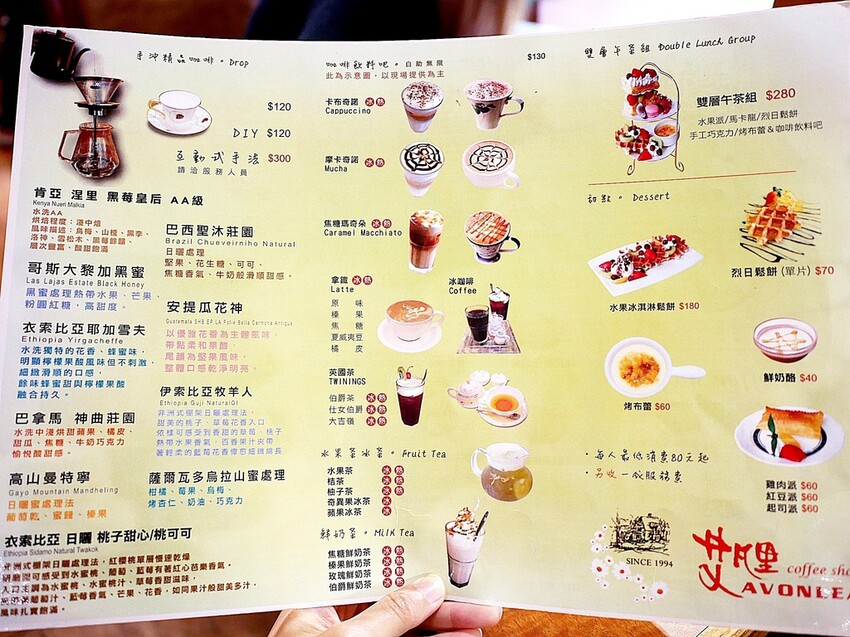 手沖精品咖啡。Drop
$120
DIY $120
互動式手沖 $300
請洽服務人員
肯亞 涅里 黑莓皇后 AA級
Kenya Nueri Malkia
水洗AA
烘焙程度：淺中焙
風味描述：烏梅、山楂、黑李、
洛神、雪松木、黑莓餘韻、
層次豐富、酸甜飽滿
哥斯大黎加黑蜜
Las Lajas Estate Black Honey
黑蜜處理熱帶水果、芒果、
粉圓紅糖，高甜度。
衣索比亞耶加雪夫
Ethiopia Yirgacheffe
水洗獨特的花香、蜂蜜味，
明顯檸檬果酸風味但不刺激，
細緻滑順的口感，
餘味蜂蜜甜與檸檬果酸
融合持久。
巴拿馬 神曲莊園
水洗中淺烘甜蘋果、橘皮、
甜瓜、焦糖、牛奶巧克力
愉悅酸甜感。
高山曼特寧
Gayo Mountain Mandheling
日曬蜜處理
葡萄乾、蜜餞、榛果
巴西聖沐莊園
Brazil Chueveirnho Natural
日曬處理
堅果、花生糖、可可、
焦糖香氣、牛奶般滑順甜感。
安提瓜花神
Guatemala SHB EP LA Folie Bella Carmona Antigua
以優雅花香為主體風味，
帶點柔和果醋，
尾韻為堅果風味，
整體口感乾淨明亮。
伊索比亞牧羊人
Ethiopia Guji NaturalGI
非洲式棚架日曬處理法，
甜美的桃子、草莓花香入口
依樣可感受到香甜的草莓、桃子
熱帶水果香氣，百香果汁夾帶
著輕柔的藍莓花香偉愈細緻綿長
薩爾瓦多烏拉山蜜處理
柑橘、莓果、烏梅、
烤杏仁、奶油、巧克力
衣索比亞 日曬 桃子甜心/桃可可
Ethiopia Sidamo Natural Twakok
非洲式棚架日曬處理法，紅櫻桃單層慢速乾燥
研磨即可感受到水蜜桃、葡萄、藍莓有著紅心芭樂香氣。
入口主調為水蜜桃、水蜜桃汁、草莓香甜滋味，
風味扎實飽滿。
咖啡飲料吧。自助無限 $130
此為示意圖，以現場提供為主
卡布奇諾 冰 熱
Cappuccino
摩卡奇諾 冰 熱
Mucha
焦糖瑪奇朵 冰 熱
Caramel Macchiato
拿鐵 冰 熱
Latte
原味
榛果
焦糖
夏威夷豆
橘皮
冰咖啡
Coffee
英國茶
TWININGS
伯爵茶 冰 熱
仕女伯爵 冰 熱
大吉嶺 冰 熱
水果茶冰茶。Fruit Tea
水果茶 冰 熱
桔茶 冰 熱
柚子茶 冰 熱
奇異果冰茶 冰 熱
蘋果冰茶 冰 熱
鮮奶茶。Milk Tea
焦糖鮮奶茶 冰 熱
榛果鮮奶茶 冰 熱
玫瑰鮮奶茶 冰 熱
伯爵鮮奶茶 冰 熱
雙層午茶組 Double Lunch Group
雙層午茶組 $280
水果派/馬卡龍/烈日鬆餅
手工巧克力/烤布蕾&咖啡飲料吧
甜點。Dessert
烈日鬆餅(單片) $70
水果冰淇淋鬆餅 $180
鮮奶酪 $40
烤布蕾 $60
雞肉派 $60
紅豆派 $60
起司派 $60
·每人最低消費80元起
·另收一成服務費
SINCE 1994
艾凡里 coffee sho
AVONLEA